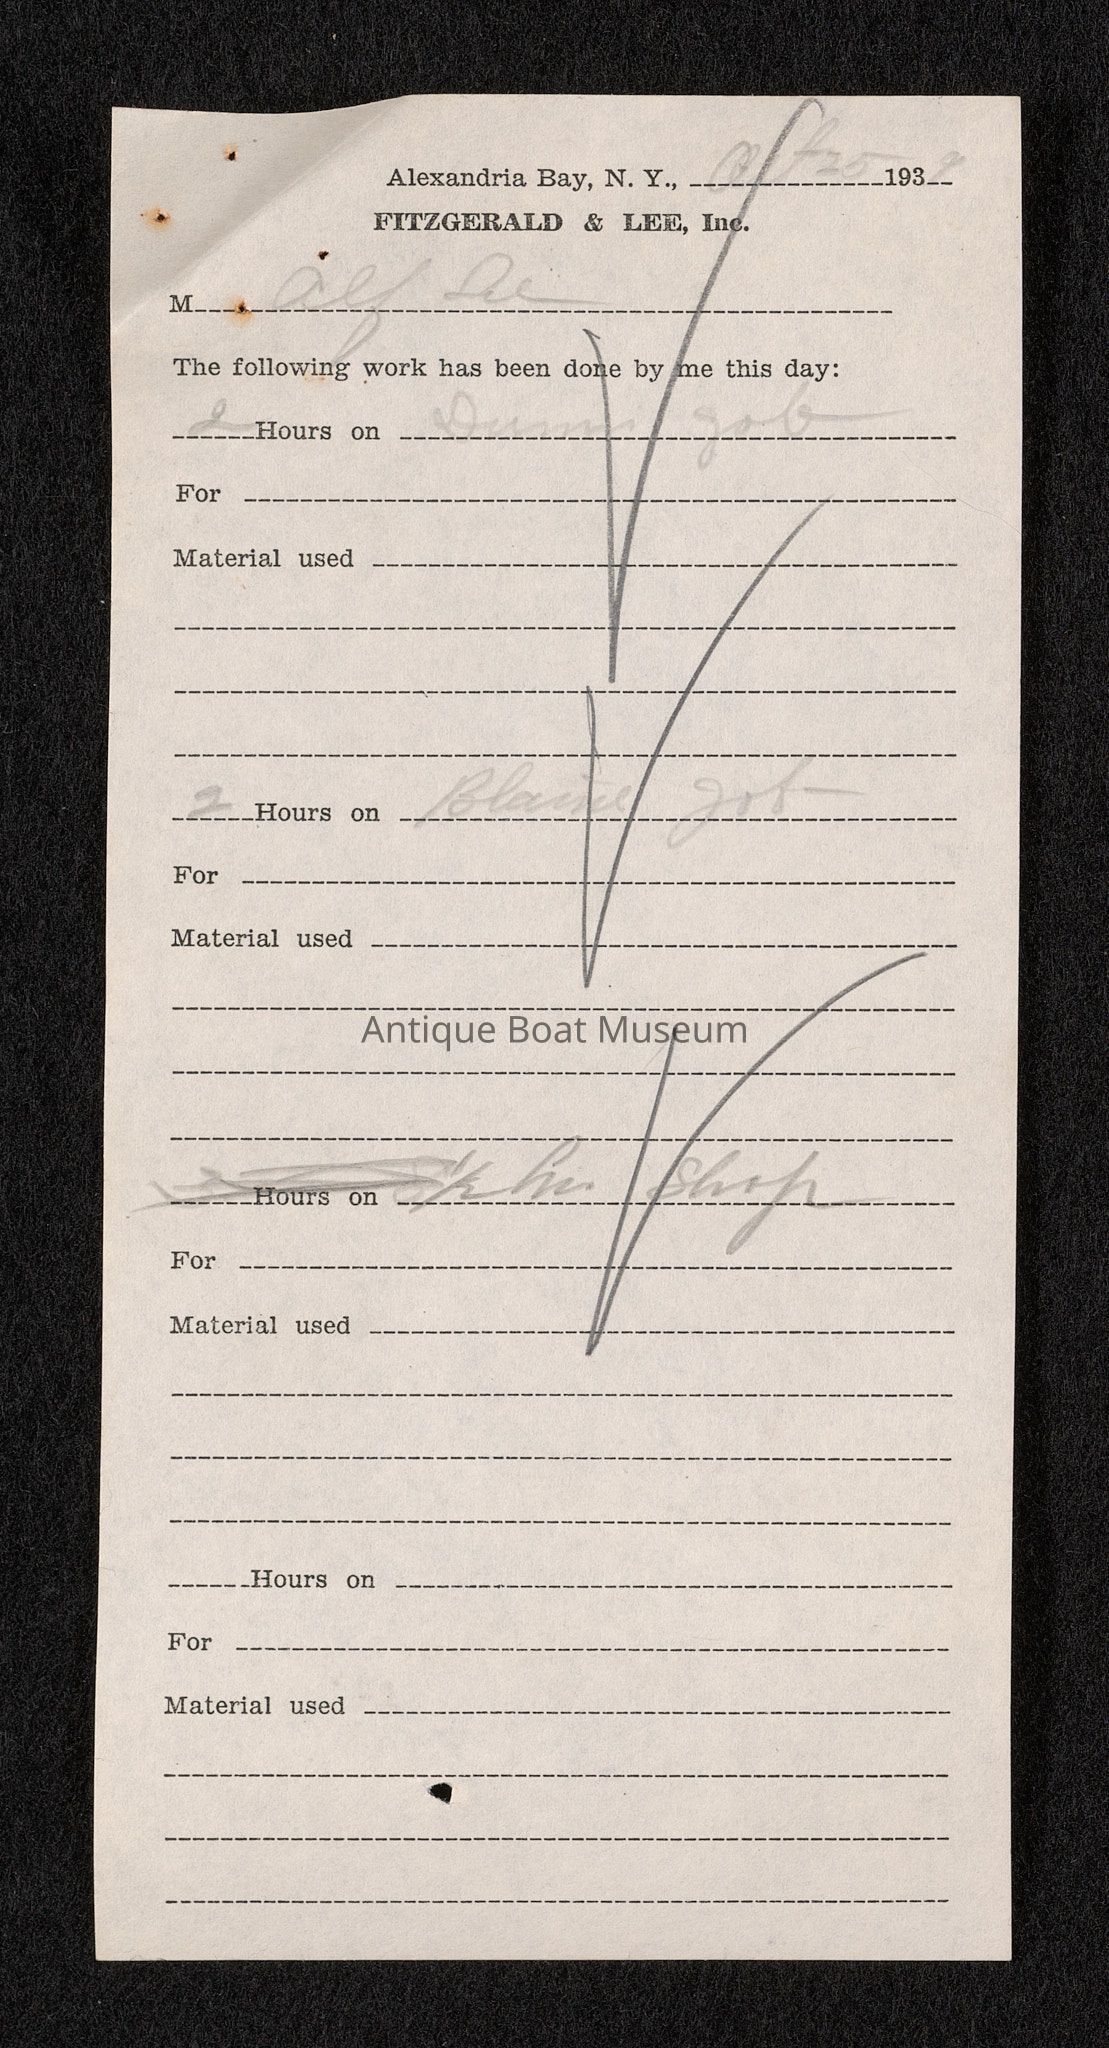 Alexandria Bay, N. Y., 193
FITZGERALD & LEE, Inc.
M Alf Lee
The following work has been done by me this day:
2 Hours on Job
For
Material used
2 Hours on Blaine Job
For
Material used
Antique Boat Museum
Hours on 1/2 hr. Shop
For
Material used
Hours on
For
Material used